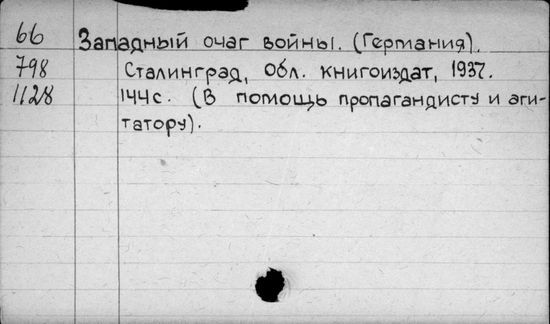 66 Западный очаг войны. (Германия).
798 Сталинград, Обл. книгоиздат, 1937.
1128 144с. (В помощь пропагандисту и аги-
татору).